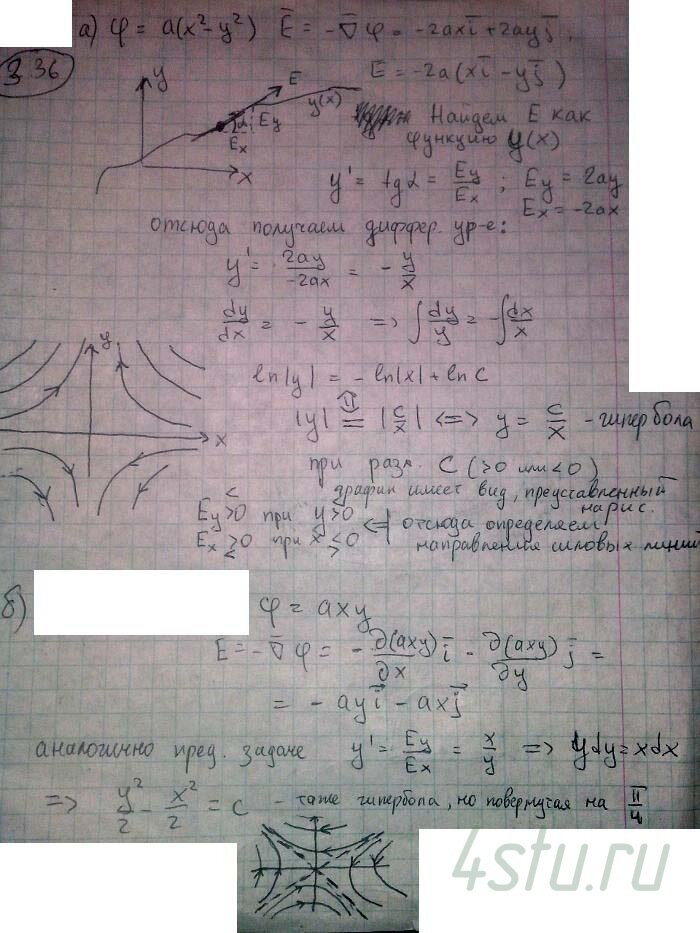 а) φ = a(x² - y²) E̅ = -∇̅φ = -2axi̅ + 2ayj̅,
3.36
E̅ = -2a(xi̅ - yj̅)
y E y(x)
α Ey
Ex
x
Найдем E как
функцию y(x)
y' = tgα = Ey/Ex ; Ey = 2ay
Ex = -2ax
отсюда получаем диффер. ур-е:
y' = 2ay/-2ax = - y/x
dy/dx = - y/x => ∫dy/y = -∫dx/x
ln|y| = -ln|x| + ln C
y
x
|y| = |c/x| <=> y = c/x - гипербола
при разл. C (>0 или <0)
график имеет вид, представленный
на рис.
<
Ey>0 при y>0
<= отсюда определяем
Ex >0 при x <0
направления силовых линий
< >
б)
φ = axy
E = -∇̅φ = - ∂(axy)/∂x i̅ - ∂(axy)/∂y j̅ =
= - ayi⃗ - axj⃗
аналогично пред. задаче y' = Ey/Ex = x/y => ydy = xdx
=> y²/2 - x²/2 = c - таже гипербола, но повернутая на π/4
4stu.ru